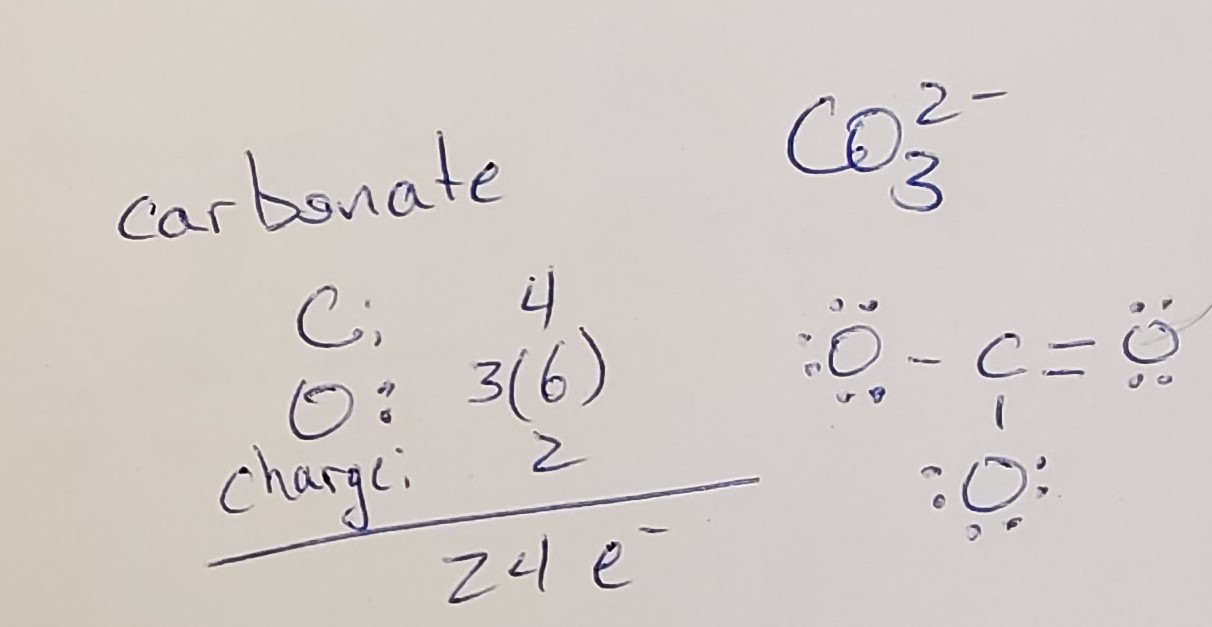 carbonate
CO₃²⁻
C: 4
O: 3(6)
charge: 2
24 e⁻
:Ö - C = Ö
|
:O: